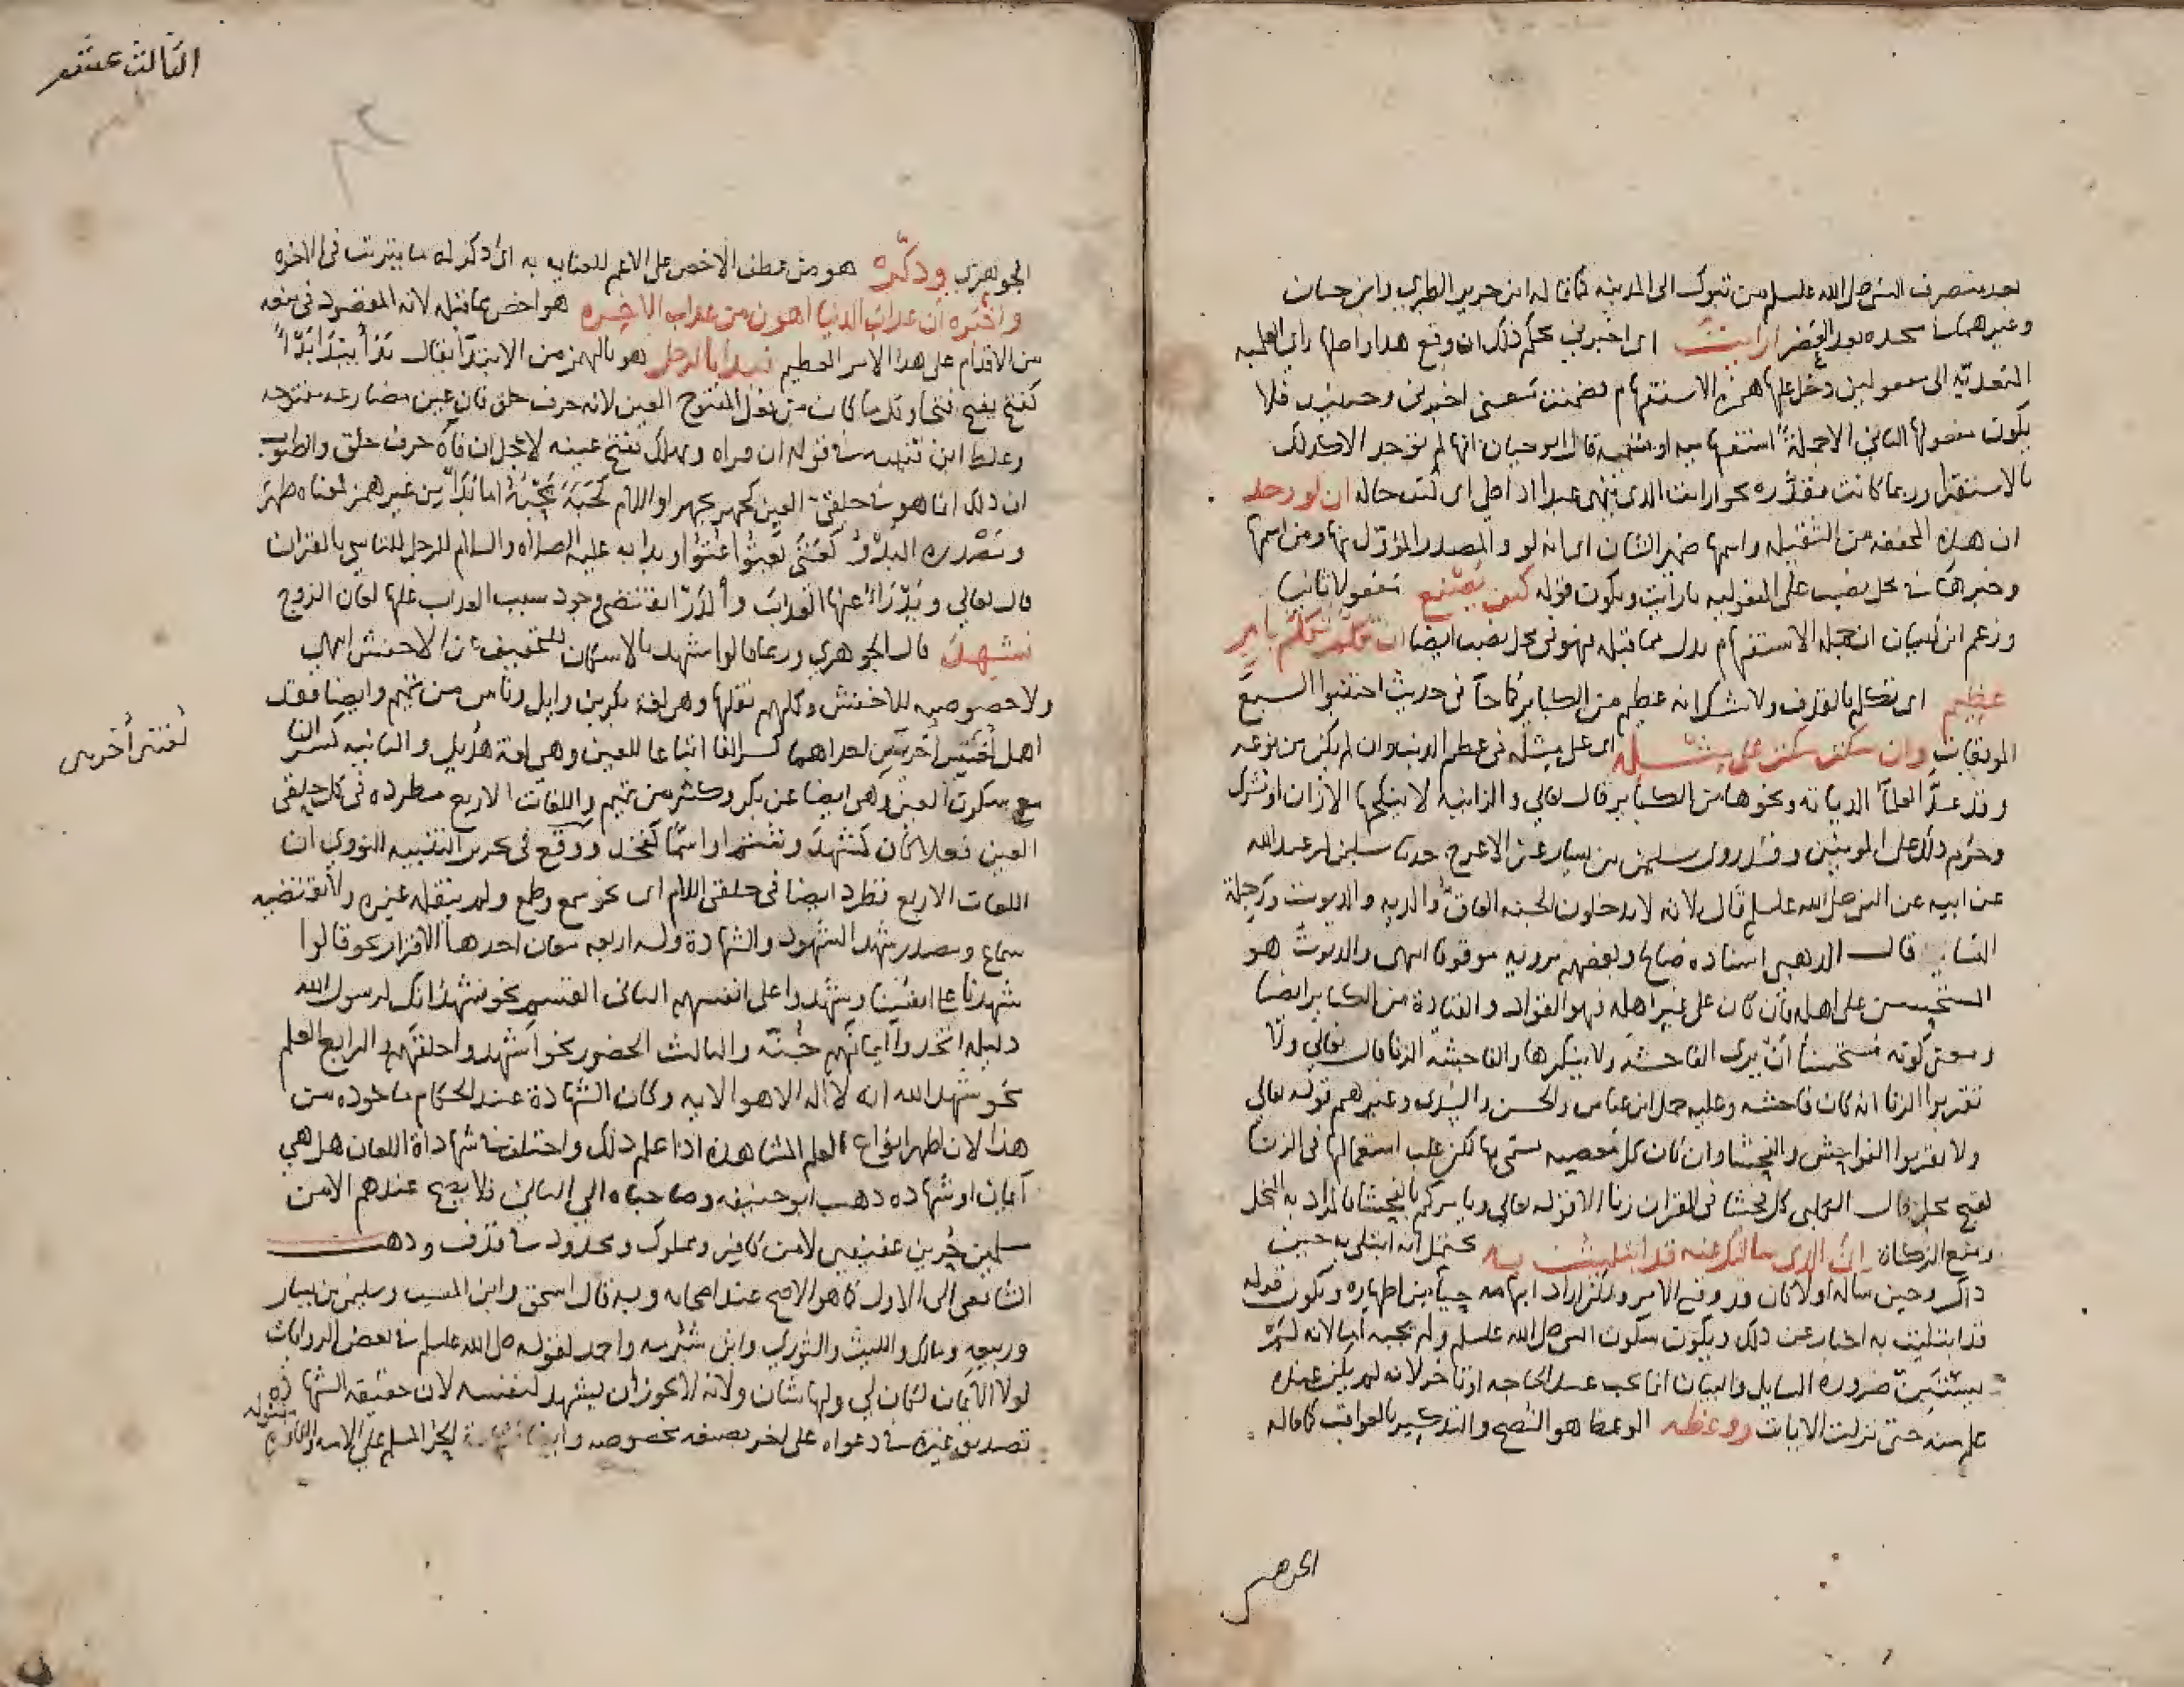 بعد منصرف النبي صلى الله عليه وسلم من تبوك الى المدينة كما قاله ابن جرير الطبري وابن حبان
وغيرهما بعد العصر ارايت اى اخبرني بحكم ذلك ان وقع هذا واصلها راى العلمية
المتعدية الى مفعولين دخل عليها همزة الاستفهام فضمنت معنى اخبرنى وحينئذ فلا
يكون مفعولها الثاني الا جملة استفهامية او قسمية قال ابو حيان انها لم توجد الا كذلك
بالاستقرا وربما كانت مقدره نحو ارايت الذى ينهى عبدا اذا صلى اى كيف حاله ان لو وجد
ان هذه المخففة من الثقيلة واسمها ضمير الشان اى انه لو والمصدر المؤول منها ومن اسمها
وخبرها في محل نصب على المفعولية بارايت ويكون قوله كيف يصنع مفعولا ثانيا
وزعم ابن كيسان ان جملة الاستفهام بدل مما قبله فهو في محل نصب ايضا ان تكلم تكلم بامر
عظيم اى تكلم بالقذف ولا شك انه عظيم من الكباير كما جا في حديث اجتنبوا السبع
الموبقات وان سكت سكت على مثله اى على مثله في عظم الذنب وان لم يكن من نوعه
وقد عد العلما الدياثه ونحوها من الكباير قال تعالي والزانيه لا ينكحها الا زان او مشرك
وحرم ذلك على المومنين وقد روى سليمن بن يسار عن الاعرج حدثنا سالم بن عبد الله
عن ابيه عن النبي صلى الله عليه وسلم قال ثلاثه لا يدخلون الجنه العاق والديه والديوث ورجلة
النسا قال الذهبي اسناده صالح وبعضهم يرويه موقوفا انتهى والديوث هو
المستحسن على اهله فان كان على غير اهله فهو القواد والقيادة من الكباير ايضا
ومعنى كونه مستحسنا ان يرى الفاحشة ولا ينكرها والفاحشه الزنا قال تعالي ولا
تقربوا الزنا انه كان فاحشه وعليه حمل ابن عباس والحسن والسدى وغيرهم قوله تعالي
ولا تقربوا الفواحش والفحشا وان كان كل معصيه تسمى بها لكن غلب استعمالها في الزنا
لقبح محله قال الكلبي كل فحشا في القران زنا الا قوله تعالي ويامركم بالفحشا فالمراد به البخل
ومنع الزكاة ان الذى سالتك عنه قد ابتليت به يحتمل انه ابتلي به حين
ذاك وحين ساله اولا كان قد وقع الامر ولكن اراد ابهامه حياء من اظهاره ويكون قوله
قد ابتليت به اخبار عن ذلك ويكون سكوت النبي صلى الله عليه وسلم ولم يجبه اما لانه لم
يستبن ضروره السايل والبيان انما يجب عند الحاجه او تاخر لانه لم يكن عنده
علم منه حتى نزلت الايات ووعظه الوعظ هو النصح والتذكير بالعواقب كما قاله
الجوهرى
الثالث عشر
الجوهري وذكره هو من عطف الاخص على الاعم للعنايه به اى ذكر له ما يترتب في الاخره
واخبره ان عذاب الدنيا اهون من عذاب الاخره هو اخص مما قبله لانه المقصود في منعه
من الاقدام على هذا الامر العظيم فبدا بالرجل هو بالهمز من الابتدا يقال بدأ يبدأ بدأ
كفتح يفتح فتحا وقل ما كان من فعل المفتوح العين لانه حرف حلق فان عين مضارعه مفتوحه
وغلط ابن قتيبه في قوله ان قراه وهلك بفتح عينه لاجل ان فاه حرف حلق والصواب
ان ذلك انما هو في حلقي العين كجهر يجهر او اللام كجبه يجبه اما بدا من غير همز فمعناه ظهر
ومصدره البدو كعثى يعثوا عثوا وبدا به عليه الصلاه والسلام للرجل للتاسي بالقران
قال تعالي ويدرا عنها العذاب والدرا يقتضى وجود سبب العذاب عليها لعان الزوج
فشهد قال الجوهري وربما قالوا شهد بالاسكان للتخفيف عن الاخفش انتهي
ولا خصوصيه للاخفش وكلهم نقلها وهى لغة بكر بن وايل وناس من تميم وايضا فقد
اهل لغتين اخريين احداهما كسر الفا اتباعا للعين وهى لغة هذيل والثانيه كسران
لغتين أخريين
مع سكون العين وهى ايضا عن بكر وكثير من تميم واللغات الاربع مطرده في كل حلقي
العين فعلا كان كشهد ونغر او اسما كفخذ ووقع في تحرير التنبيه للنووي ان
اللغات الاربع تطرد ايضا في حلقي اللام اى نحو سمع وطمع ولم ينقله غيره ولا يقتضيه
سماع ومصدر شهد الشهود والشهادة وله اربعه معان احدها الاقرار نحو قالوا
شهدنا على انفسنا وشهدوا على انفسهم الثانى القسم نحو نشهد انك لرسول الله
دليله اتخذوا ايمانهم جنة والثالث الحضور نحو اشهدوا خلقهم والرابع العلم
نحو شهد الله انه لا اله الا هو الايه وكان الشهادة عند الحكام ماخوده من
هذا لان اظهر انواع العلم المشاهدة اذا علم ذلك واختلف في شهاداة اللعان هل هي
ايمان او شهاده ذهب ابو حنيفه وصاحباه الي الثاني فلا يصح عندهم الا من
مسلمين حرين عفيفين لا من كافر ومملوك ومحدود في قذف وذهب
الشافعى الى الاول كما هو الاصح عند اصحابه وبه قال اسحق وابن المسيب وسليمن بن يسار
وربيعه ومالك والليث والثوري وابن شبرمه واحمد لقوله صلى الله عليه وسلم في بعض الروايات
لولا الايمان لكان لي ولها شان ولانه لا يجوز ان يشهد لنفسه لان حقيقه الشهاده
تصديق غيره في دعواه على اخر بصيغه مخصوصه وايضا الحر المسلم على الامه